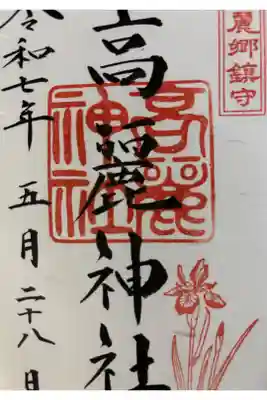 麗郷鎮守
高麗神社
高麗神社
令和七年 五月 二十八日